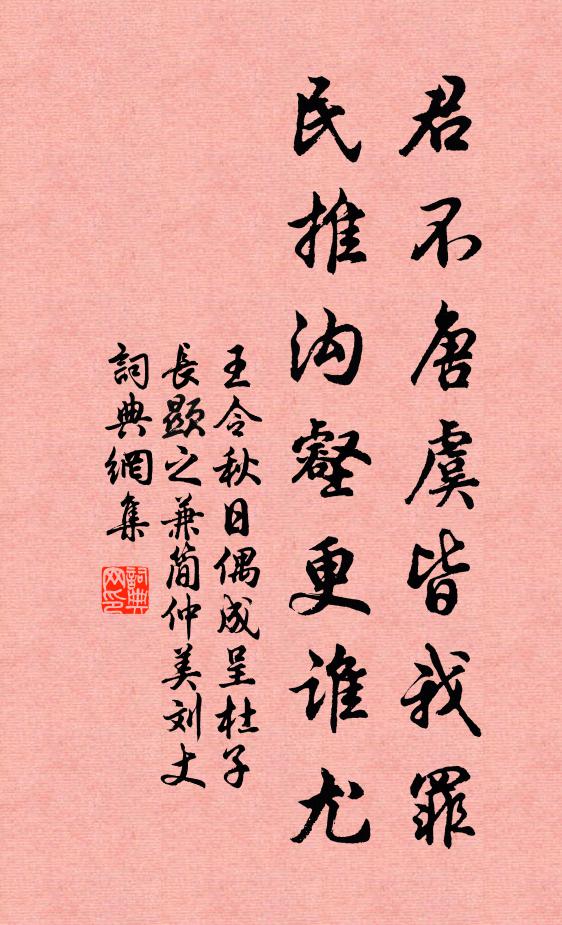 君不唐虞皆我罪
民推沟壑更谁尤
王令秋日偶成呈杜子
長顕之兼简仲美刘丈
詞典網集
詞典网印